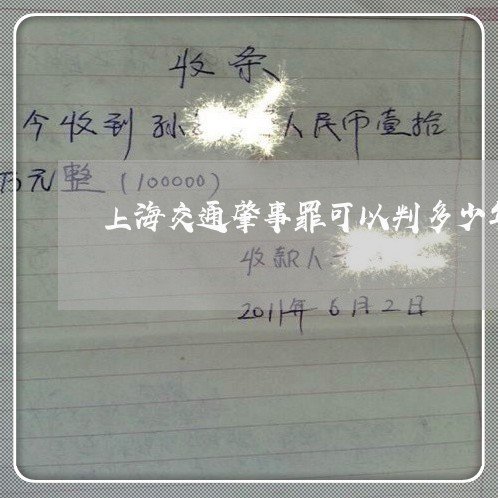 收条
今收到孙 人民币壹拾
万元整(100000)
上海交通肇事罪可以判多少
收款人
2011年6月2日